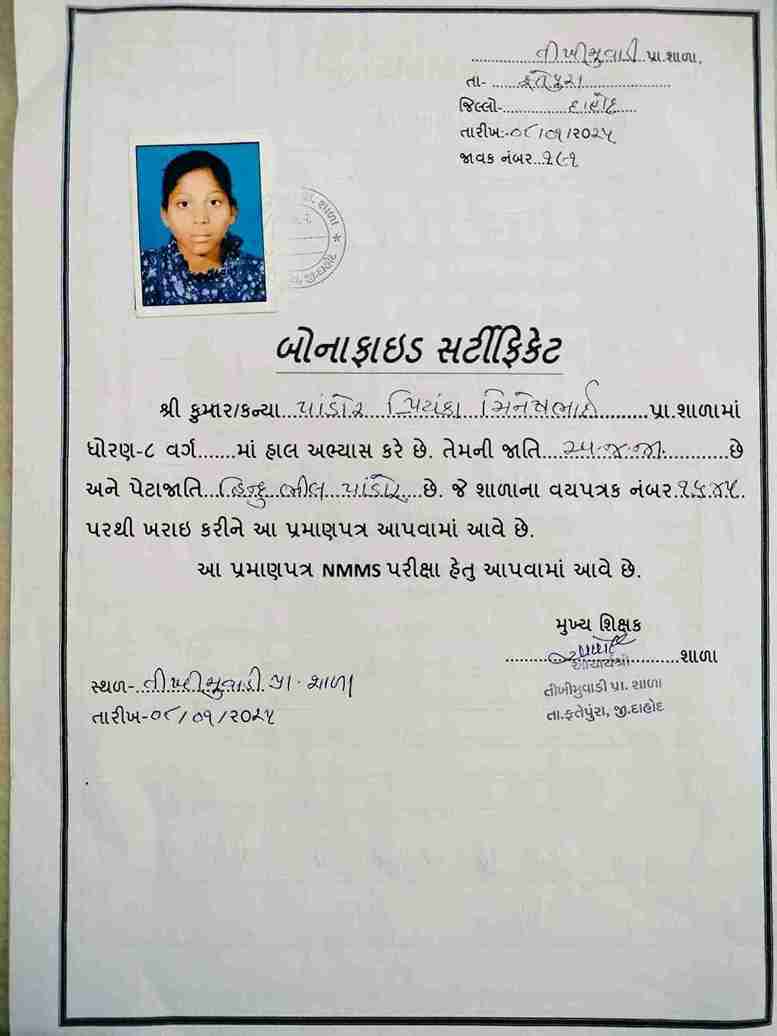 તીખીમુવાડી પ્રા.શાળા,
તા- ફતેપુરા
જિલ્લો- દાહોદ
તારીખ:-૦૮/૦૧/૨૦૨૫
જાવક નંબર..
પ્રા. શાળા
બોનાફાઇડ સર્ટીફિકેટ
શ્રી કુમાર/કન્યા...પાંડોર પ્રિયંકા મિનેષભાઈ.........પ્રા.શાળામાં
ધોરણ-૮ વર્ગ.......માં હાલ અભ્યાસ કરે છે. તેમની જાતિ ...અ.જ.જા...........છે
અને પેટાજાતિ..હિન્દુ ભીલ પાંડોર...છે. જે શાળાના વયપત્રક નંબર.૧૫૪૫.
પરથી ખરાઇ કરીને આ પ્રમાણપત્ર આપવામાં આવે છે.
આ પ્રમાણપત્ર NMMS પરીક્ષા હેતુ આપવામાં આવે છે.
મુખ્ય શિક્ષક
.............................શાળા
આચાર્યશ્રી
સ્થળ-..તીખીમુવાડી પ્રા. શાળા
તીખીમુવાડી પ્રા. શાળા
તારીખ-૦૮/૦૧/૨૦૨૫
તા.ફતેપુંરા, જી.દાહોદ